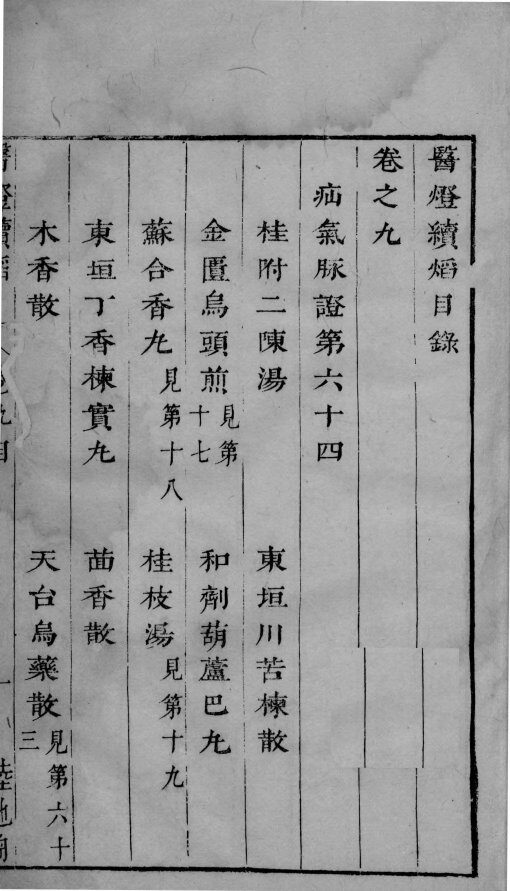 醫燈續焰目錄
卷之九
疝氣脉證第六十四
桂附二陳湯 東垣川苦楝散
金匱烏頭煎 見第十七 和劑葫蘆巴丸
蘇合香丸 見第十八 桂枝湯 見第十九
東垣丁香楝實丸 茴香散
木香散 天台烏藥散 見第六十三